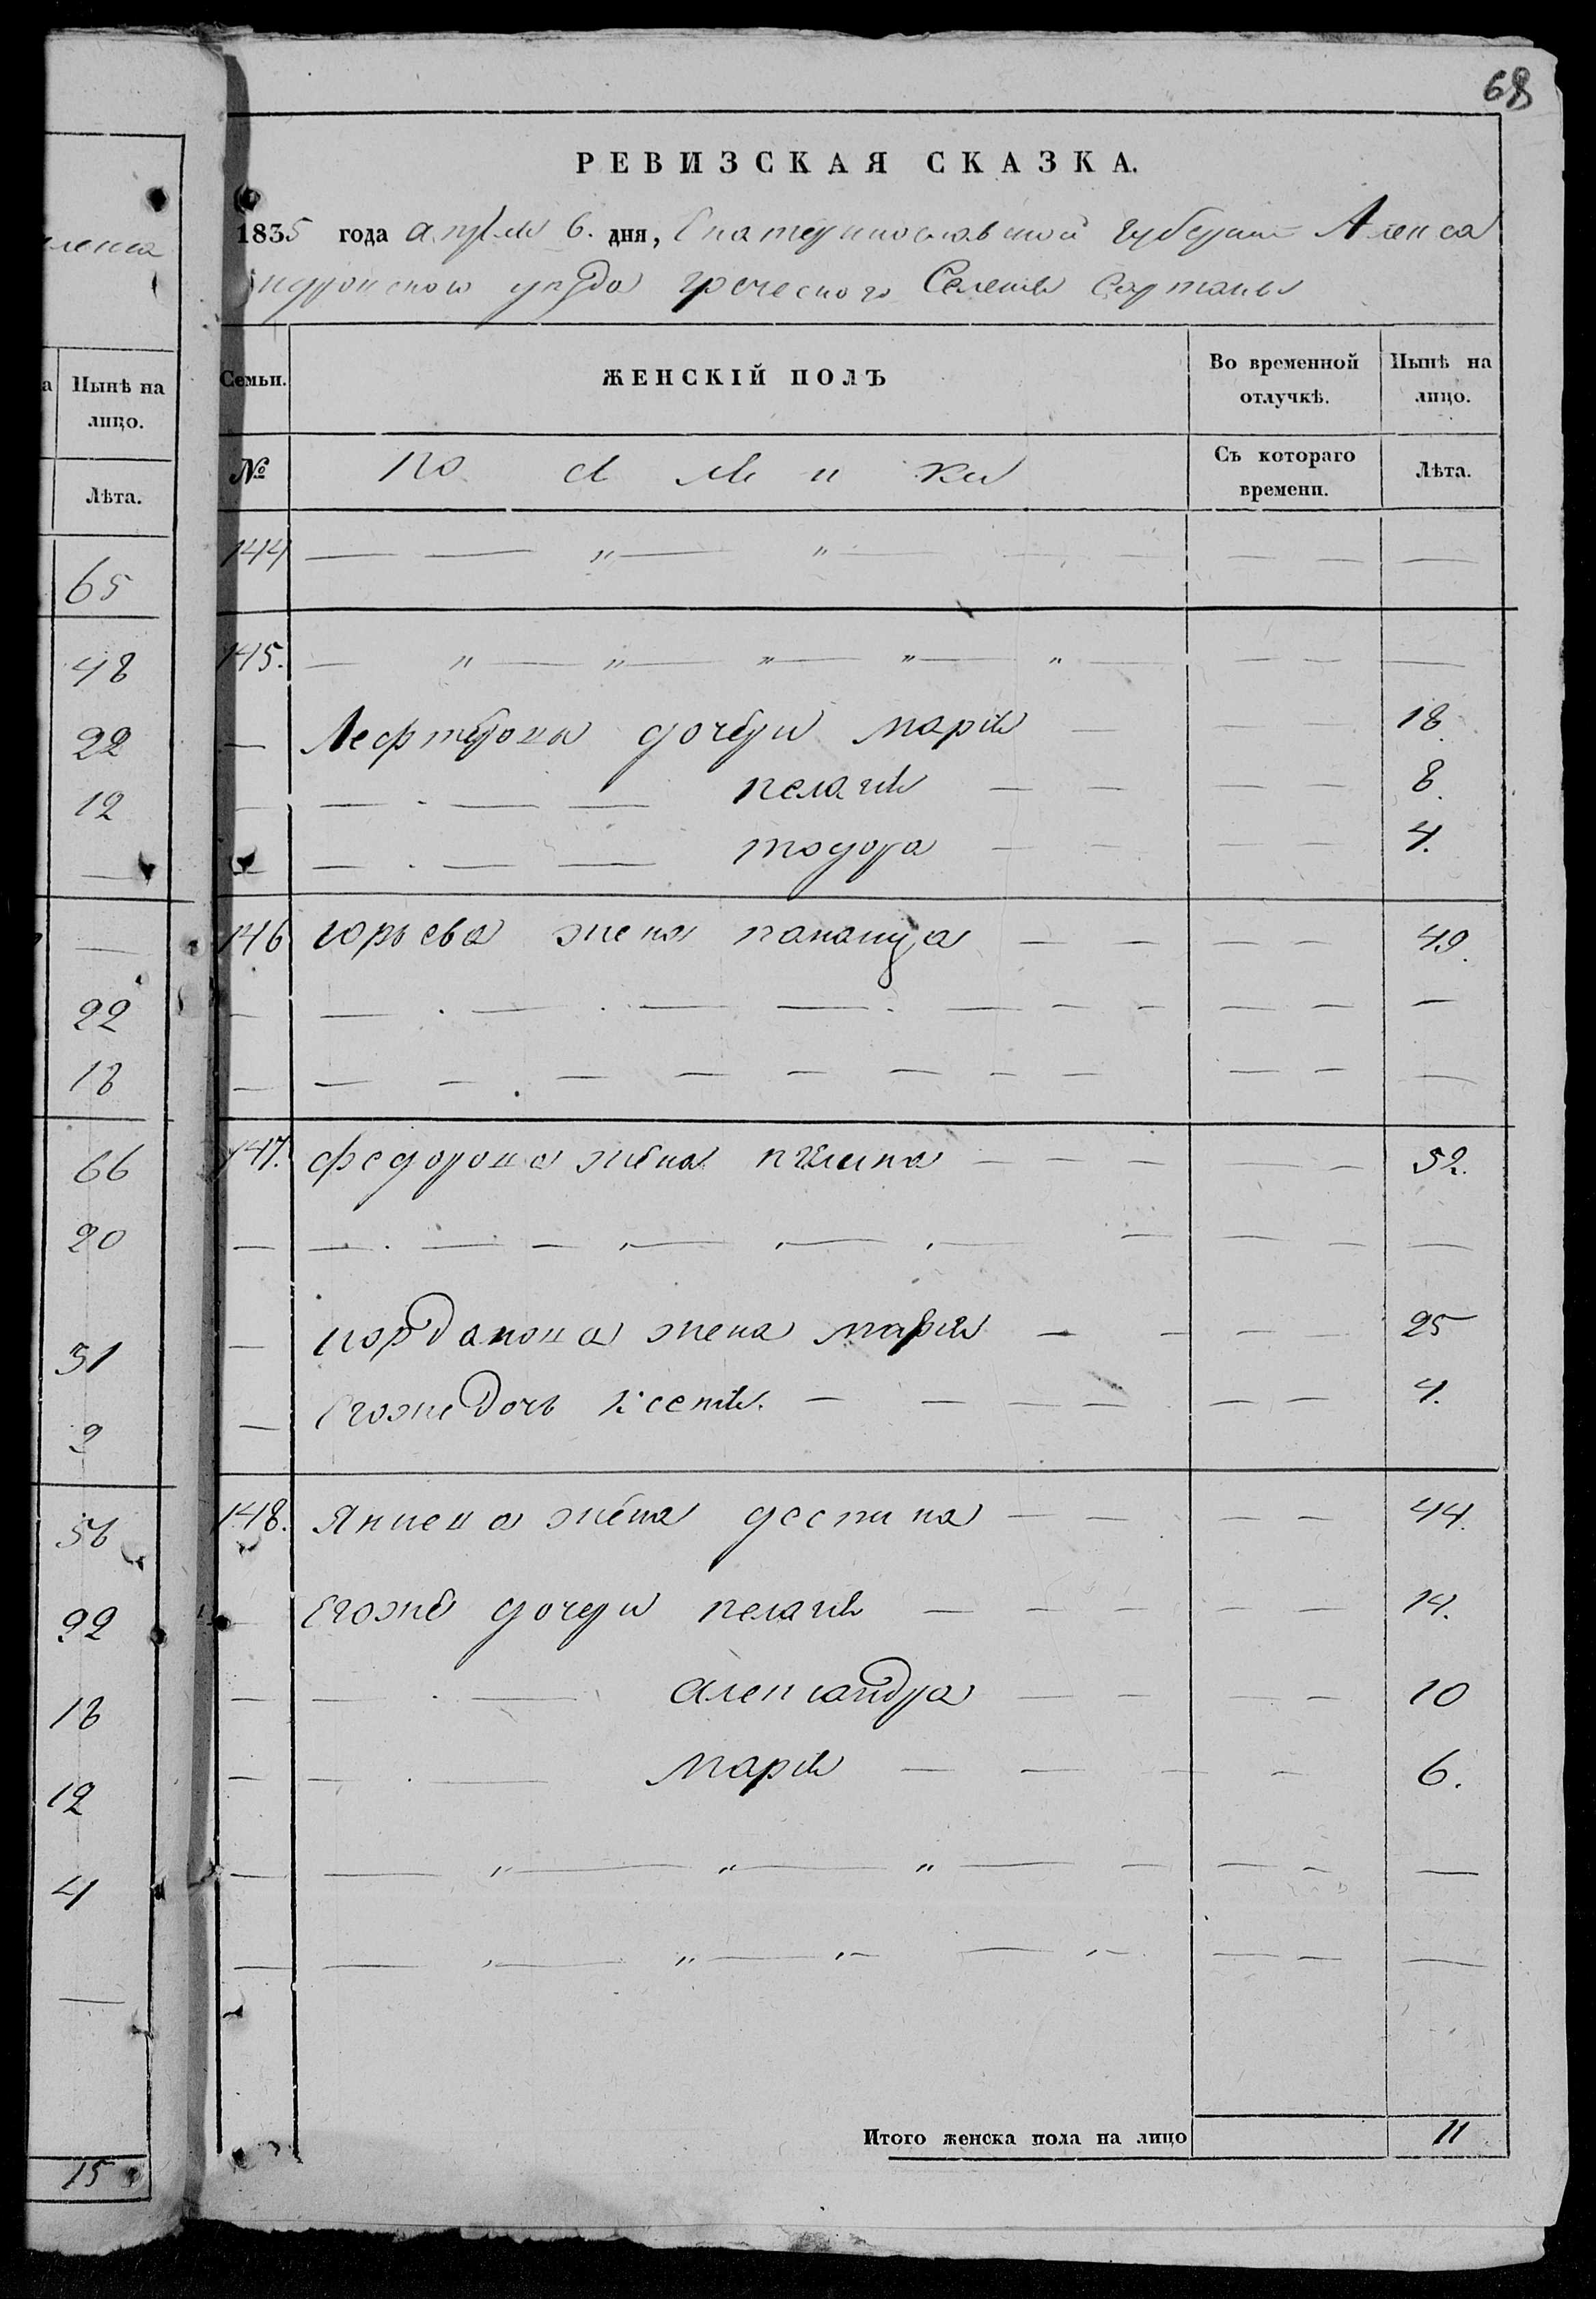 68
РЕВИЗСКАЯ СКАЗКА.
1835 года апреля 6. дня, Екатеринославской губернии Алекса
ндровскаго уезда греческого Селения Сартаны
Семьи. ЖЕНСКІЙ ПОЛЪ Во временной отлучкѣ. Нынѣ на лицо.
№ Съ котораго времени. Лѣта.
144 — — " — " — — — — — —
145. — " — " — " — " — " — — — —
— Лефтерова дочери марія — — — 18.
— — . — — пелагія — — — — 8.
— — . — — тодора — — 4.
146 юрьева жена — — — — 49.
— — . — . — — . — — — — — —
— — — . — — — — — — — — —
147. федорова жена — — — — — 52.
— — . — — , — , — , — — — — —
— іорданова жена марія — — — — 25
— Егоже дочь Ксенія. — — — — — — 4.
148. Яниева жена деспина — — — — 44.
— Егоже дочери пелагія — — — — — 14.
— — . — александра — — — — 10
— — . — марія — — — — 6.
— — " — " — " — — — — —
— — , — " — ,, — — ,, — — — —
Итого женска пола на лицо 11
ленса
а Нынѣ на
лицо.
Лѣта.
65
48
22
12
—
—
22
18
66
20
31
2
56
22
18
12
4
—
15